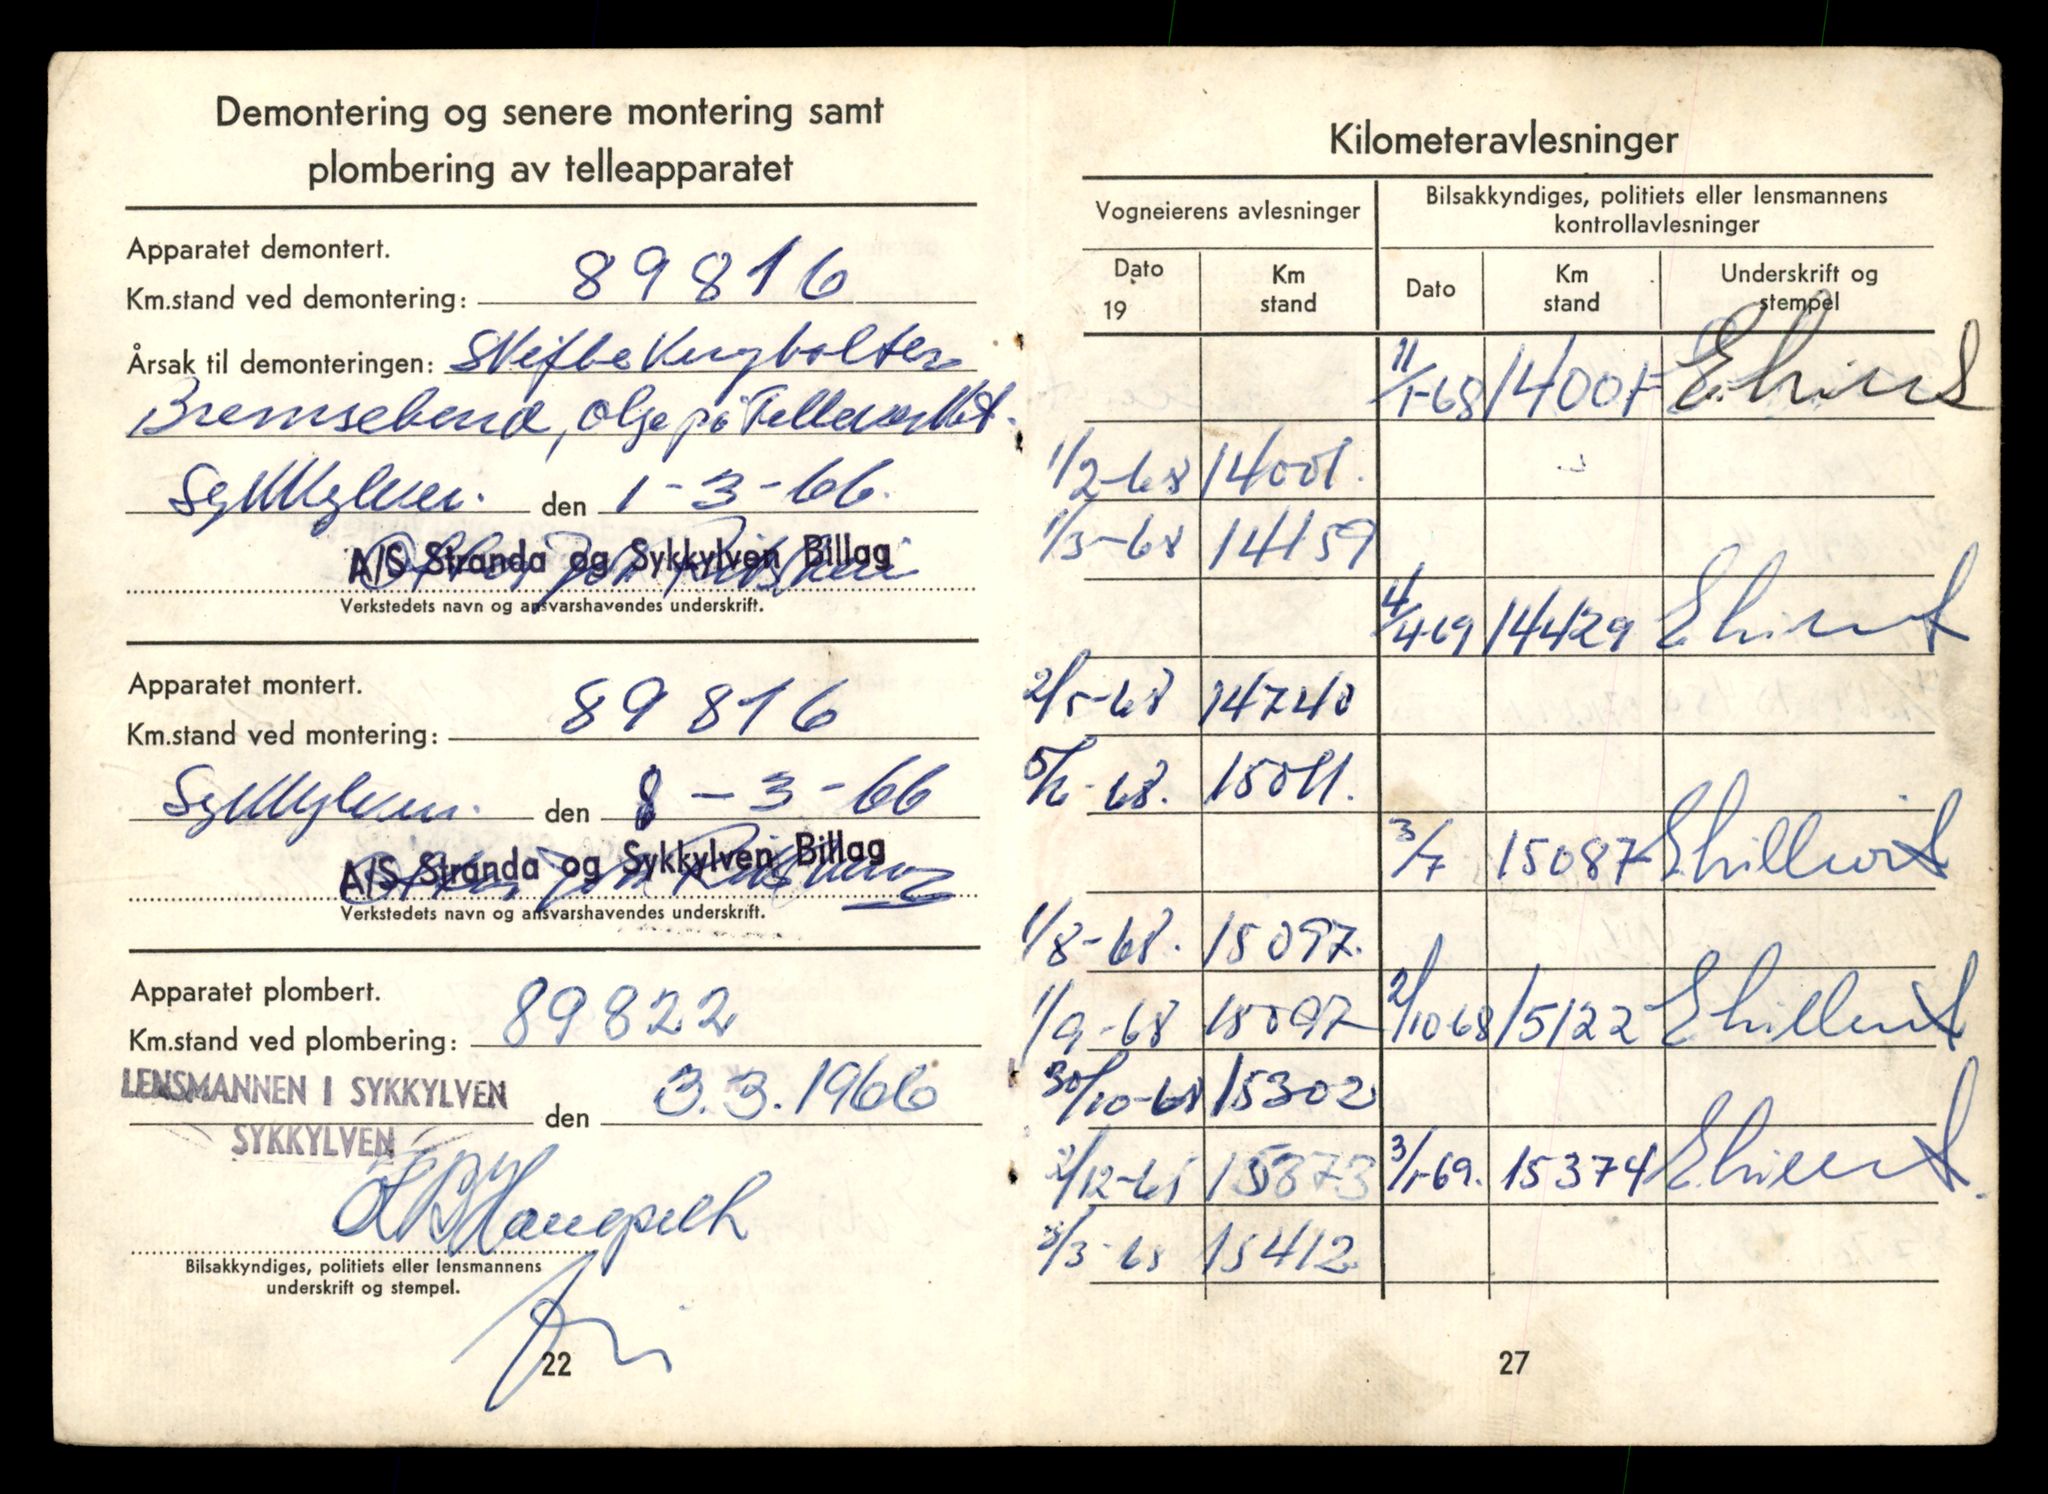 Demontering og senere montering samt
plombering av telleapparatet
Apparatet demontert.
Km.stand ved demontering: 89816
Årsak til demonteringen: Skifte Kingbolter
Bremsebend, olge på Telleverket.
Sykkylven. den 1-3-66.
A/S Stranda og Sykkylven Billag
Verkstedets navn og ansvarshavendes underskrift.
Apparatet montert.
Km.stand ved montering: 89816
Sykkylven. den 8-3-66
A/S Stranda og Sykkylven Billag
Verkstedets navn og ansvarshavendes underskrift.
Apparatet plombert.
Km.stand ved plombering: 89822
LENSMANNEN I SYKKYLVEN den 3.3.1966
SYKKYLVEN
Bilsakkyndiges, politiets eller lensmannens
underskrift og stempel.
22
Kilometeravlesninger
Vogneierens avlesninger
Bilsakkyndiges, politiets eller lensmannens
kontrollavlesninger
Dato
19
Km
stand
Dato
Km
stand
Underskrift og
stempel
11/1-68 14001
1/2-68 14001.
1/3-68 14159
4/4-69 14429
2/5-68 14740
5/6-68. 15011.
3/7 15087
1/8-68. 15097.
1/9-68 15097 2/10-68 15122
30/10-68 15302
2/12-68 15373 3/1-69. 15374
3/3-68 15412
27